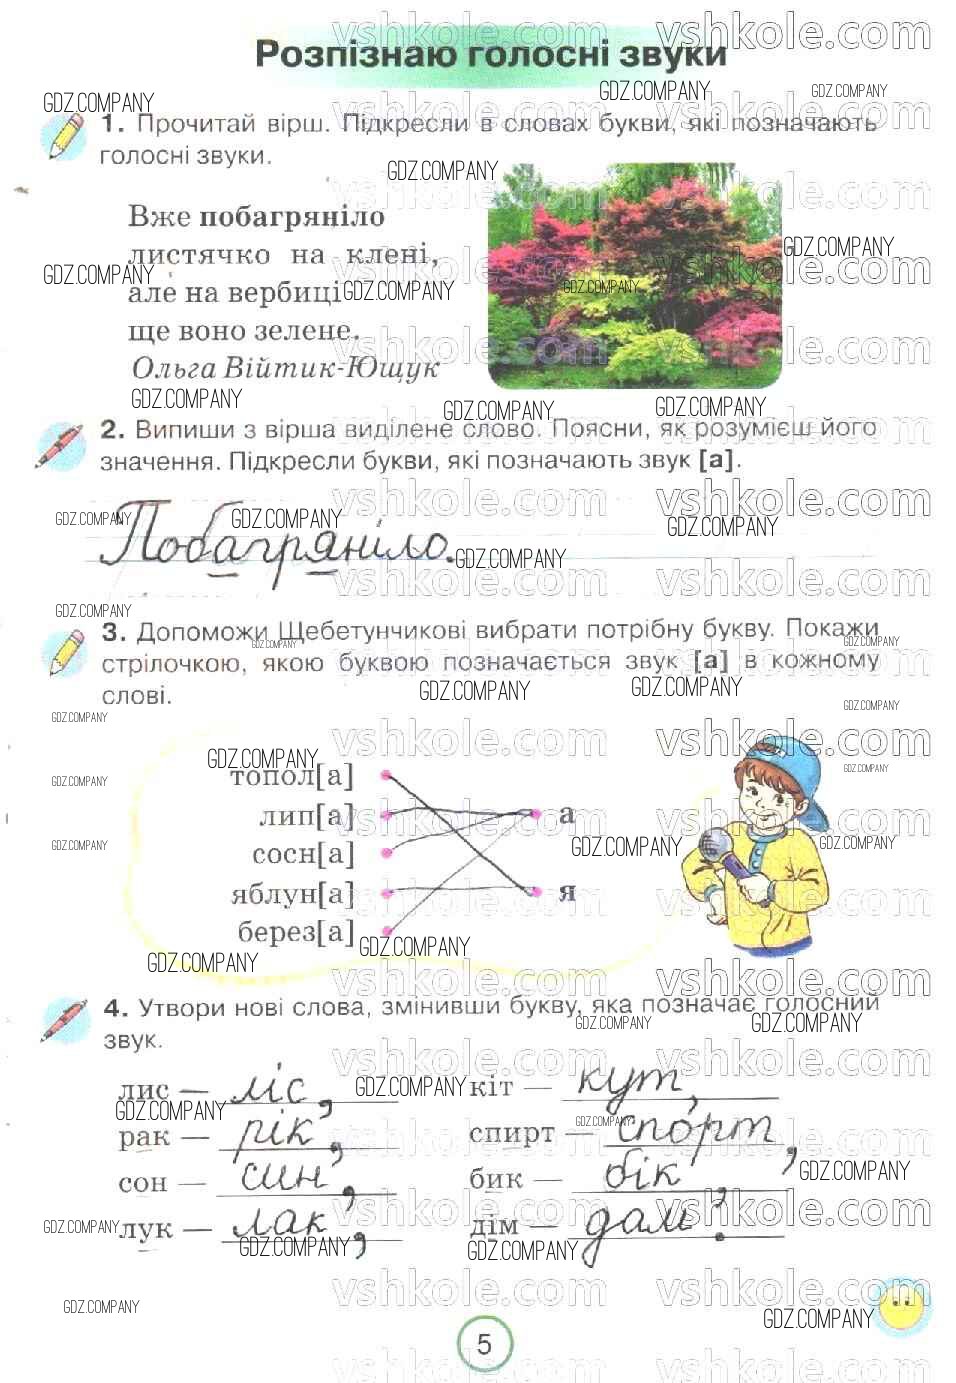 Розпізнаю голосні звуки
1. Прочитай вірш. Підкресли в словах букви, які позначають
голосні звуки.
Вже побагряніло
листячко на клені,
але на вербиці
ще воно зелене.
Ольга Війтик-Ющук
2. Випиши з вірша виділене слово. Поясни, як розумієш його
значення. Підкресли букви, які позначають звук [а].
Побагряніло.
3. Допоможи Щебетунчикові вибрати потрібну букву. Покажи
стрілочкою, якою буквою позначається звук [а] в кожному
слові.
топол[а]
лип[а] а
сосн[а]
яблун[а] я
берез[а]
4. Утвори нові слова, змінивши букву, яка позначає голосний
звук.
лис — ліс, кіт — кут,
рак — рік, спирт — спорт,
сон — син, бик — бік,
лук — лак, дім — дам.
5
vshkole.com
GDZ.COMPANY